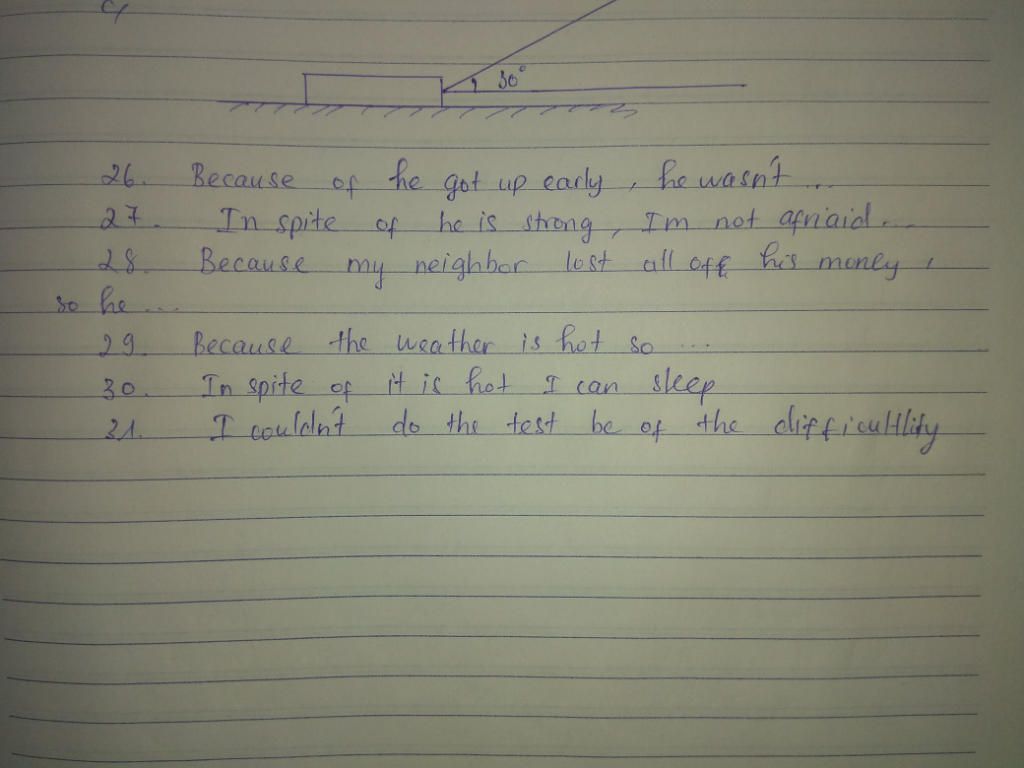 c,
30°
26. Because of he got up early, he wasn't ...
27. In spite of he is strong, I'm not afriaid...
28. Because my neighbor lost all off his money,
so he ...
29. Because the weather is hot so ...
30. In spite of it is hot I can sleep
31. I couldn't do the test be of the difficultlity